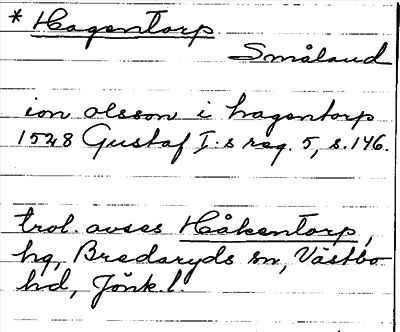 * Hagentorp
Småland
ion olsson i hagentorp
1528 Gustaf I:s reg. 5, s. 146.
trol. avses Håkentorp,
hg, Bredaryds sn, Västbo
hd, Jönk. l.